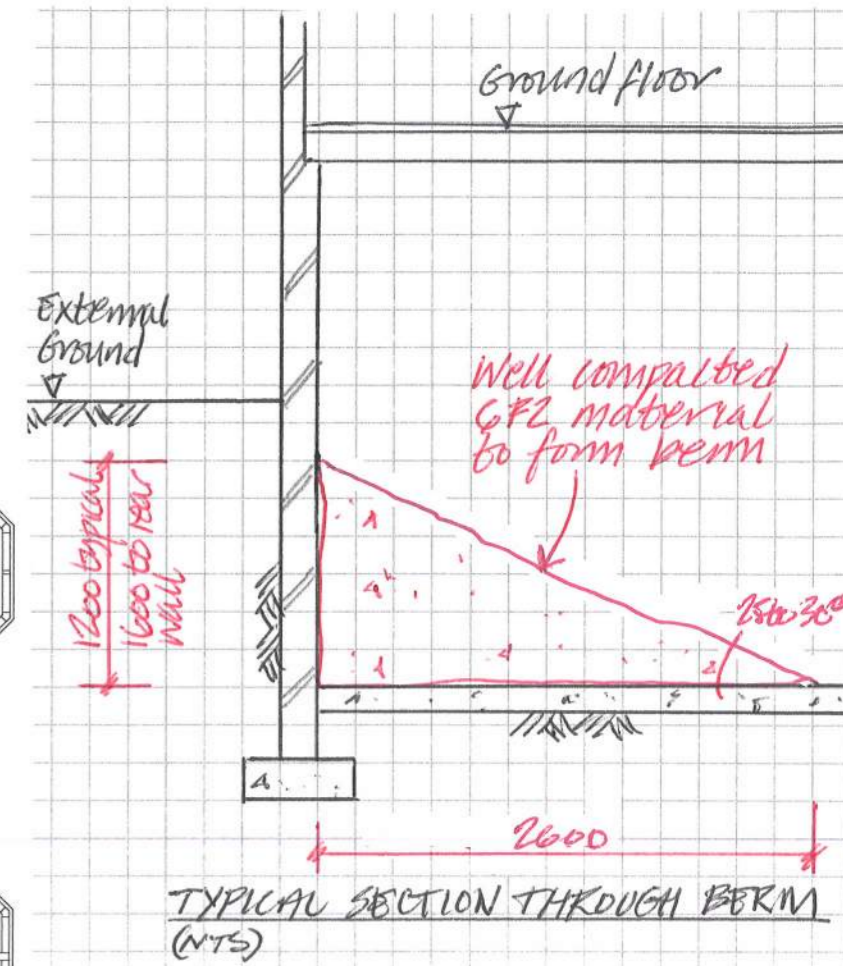 Ground floor
External
Ground
Well compacted
6F2 material
to form berm
1200 typical
1600 to rear
wall
25to30°
2600
TYPICAL SECTION THROUGH BERM
(NTS)